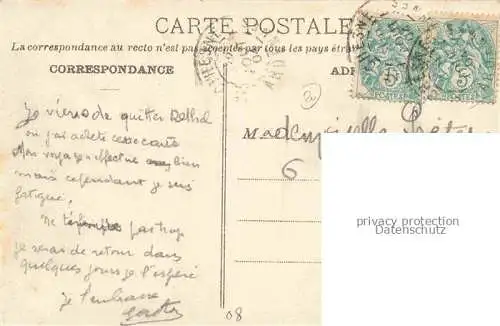 CARTE POSTALE
La correspondance au recto n'est pas acceptée par tous les pays étran
CORRESPONDANCE
ADR
2
Je viens de quitter Rethel
où j'ai acheté cette carte
Mon voyage s'effectue bien
mais cependant je suis
fatigué,
Ne pas trop
je serai de retour dans
quelques jours je l'espère
Je t'embrasse
Mademoiselle
6
6
5
5
POSTES
POSTES
privacy protection
Datenschutz
08